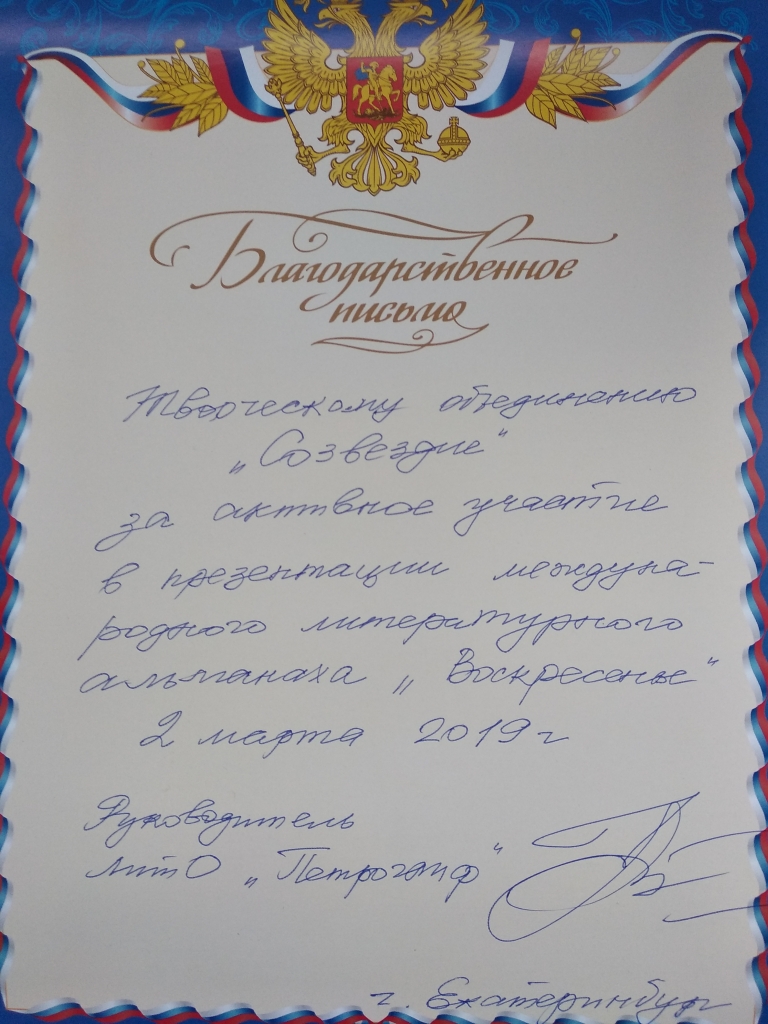 Благодарственное
письмо
Творческому объединению
„Созвездие"
за активное участие
в презентации междуна-
родного литературного
альманаха „Воскресенье"
2 марта 2019 г
Руководитель
ЛитО „Петроглиф"
г. Екатеринбург